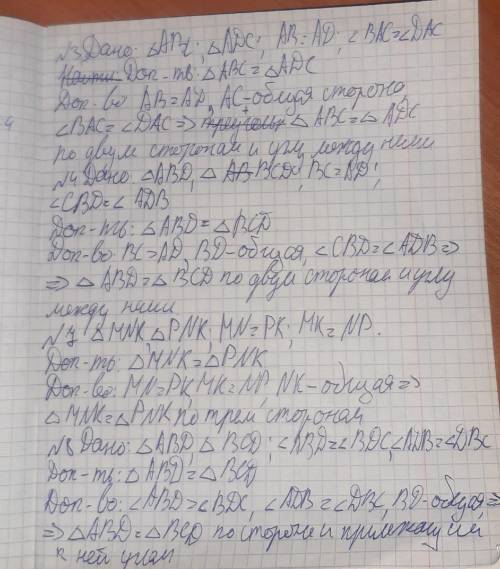 N3 Дано: △ABC; △ADC; AB=AD; ∠BAC=∠DAC
Найти Док-ть: △ABC=△ADC
Док-во AB=AD, AC-общая сторона,
∠BAC=∠DAC⇒ △ABC=△ADC
по двум сторонам и углу между ними
N4 Дано: △ABD, △BCD, BC=AD;
∠CBD=∠ADB
Док-ть: △ABD=△BCD
Док-во: BC=AD, BD-общая, ∠CBD=∠ADB⇒
⇒ △ABD=△BCD по двум сторонам и углу
между ними
N7 △MNK, △PNK; MN=PK; MK=NP.
Док-ть: △MNK=△PNK
Док-во: MN=PK, MK=NP, NK-общая⇒
△MNK=△PNK по трем сторонам
N8 Дано: △ABD, △BCD; ∠ABD=∠BDC, ∠ADB=∠DBC
Док-ть: △ABD=△BCD
Док-во: ∠ABD=∠BDC, ∠ADB=∠DBC, BD-общая⇒
⇒ △ABD=△BCD по стороне и прилежащим
к ней углам